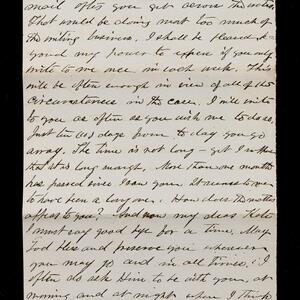 mail after you get across the water.
That would be doing most too much of
the writing business. I shall be pleased be-
yond my power to express if you only
write to me once in each week. This
will be often enough in view of all of the
circumstances in the case. I will write
to you as often as you wish me to do so.
Just ten (10) days from to-day you go
away. The time is not long - yet it is
that is long enough. More than one month
has passed since I saw you. It seems to me
to have been a long one. How does the matter
appear to you? And now my dear Kate
I must say good bye for a time. May
God bless and preserve you wherever
you may go and in all times. I
often do ask Him to be with you, at
morning and at night when I